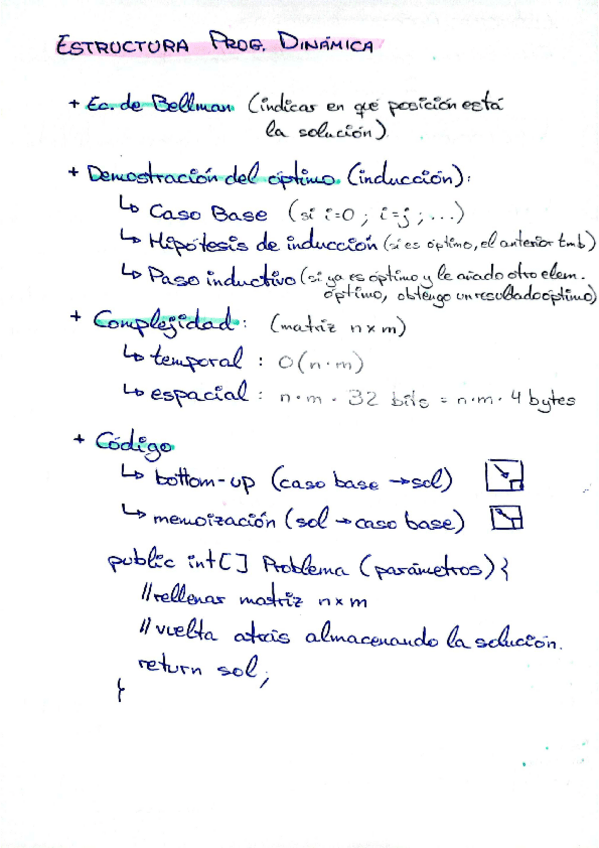 ESTRUCTURA PROG. DINÁMICA
+ Ec. de Bellman (indicar en qué posición está
la solución)
+ Demostración del óptimo (inducción):
↳ Caso Base (si i=0 ; i=j ; ...)
↳ Hipótesis de inducción (si es óptimo, el anterior tmb)
↳ Paso inductivo (si ya es óptimo y le añado otro elem.
óptimo, obtengo un resultado óptimo)
+ Complejidad: (matriz n x m)
↳ temporal : O(n·m)
↳ espacial : n·m · 32 bits = n·m · 4 bytes
+ Código
↳ bottom-up (caso base → sol)
↳ memoización (sol → caso base)
public int[] Problema (parámetros) {
//rellenar matriz n x m
//vuelta atrás almacenando la solución.
return sol;
}